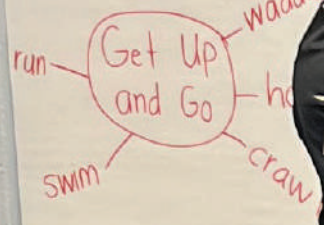 Get Up
and Go
run
swim
craw